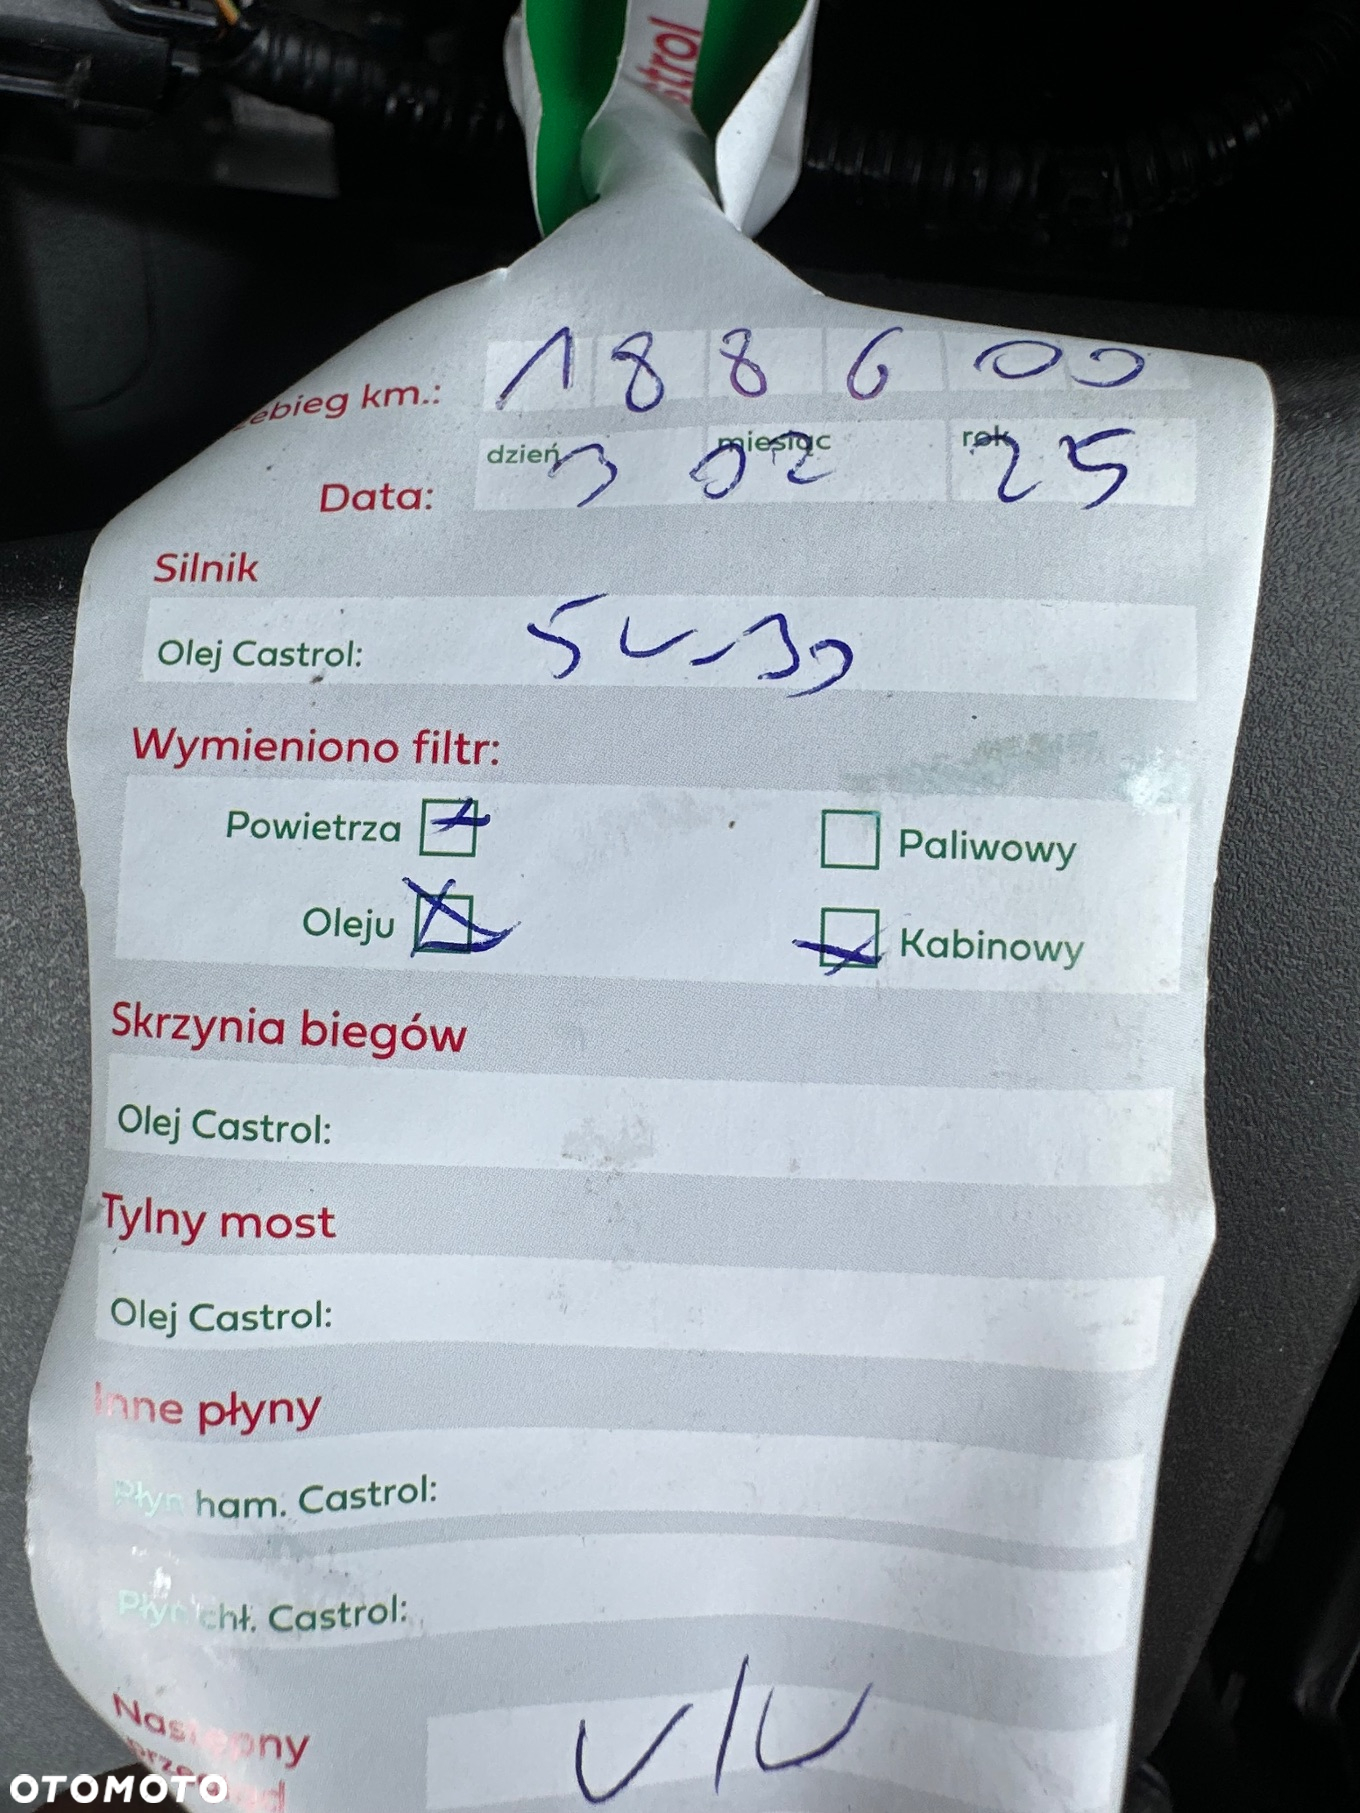 strol
ebieg km.: 188600
dzień miesiąc rok
Data: 3 02 25
Silnik
Olej Castrol: 5W-30
Wymieniono filtr:
Powietrza Paliwowy
Oleju Kabinowy
Skrzynia biegów
Olej Castrol:
Tylny most
Olej Castrol:
Inne płyny
Płyn ham. Castrol:
Płyn chł. Castrol:
Następny
OTOMOTO